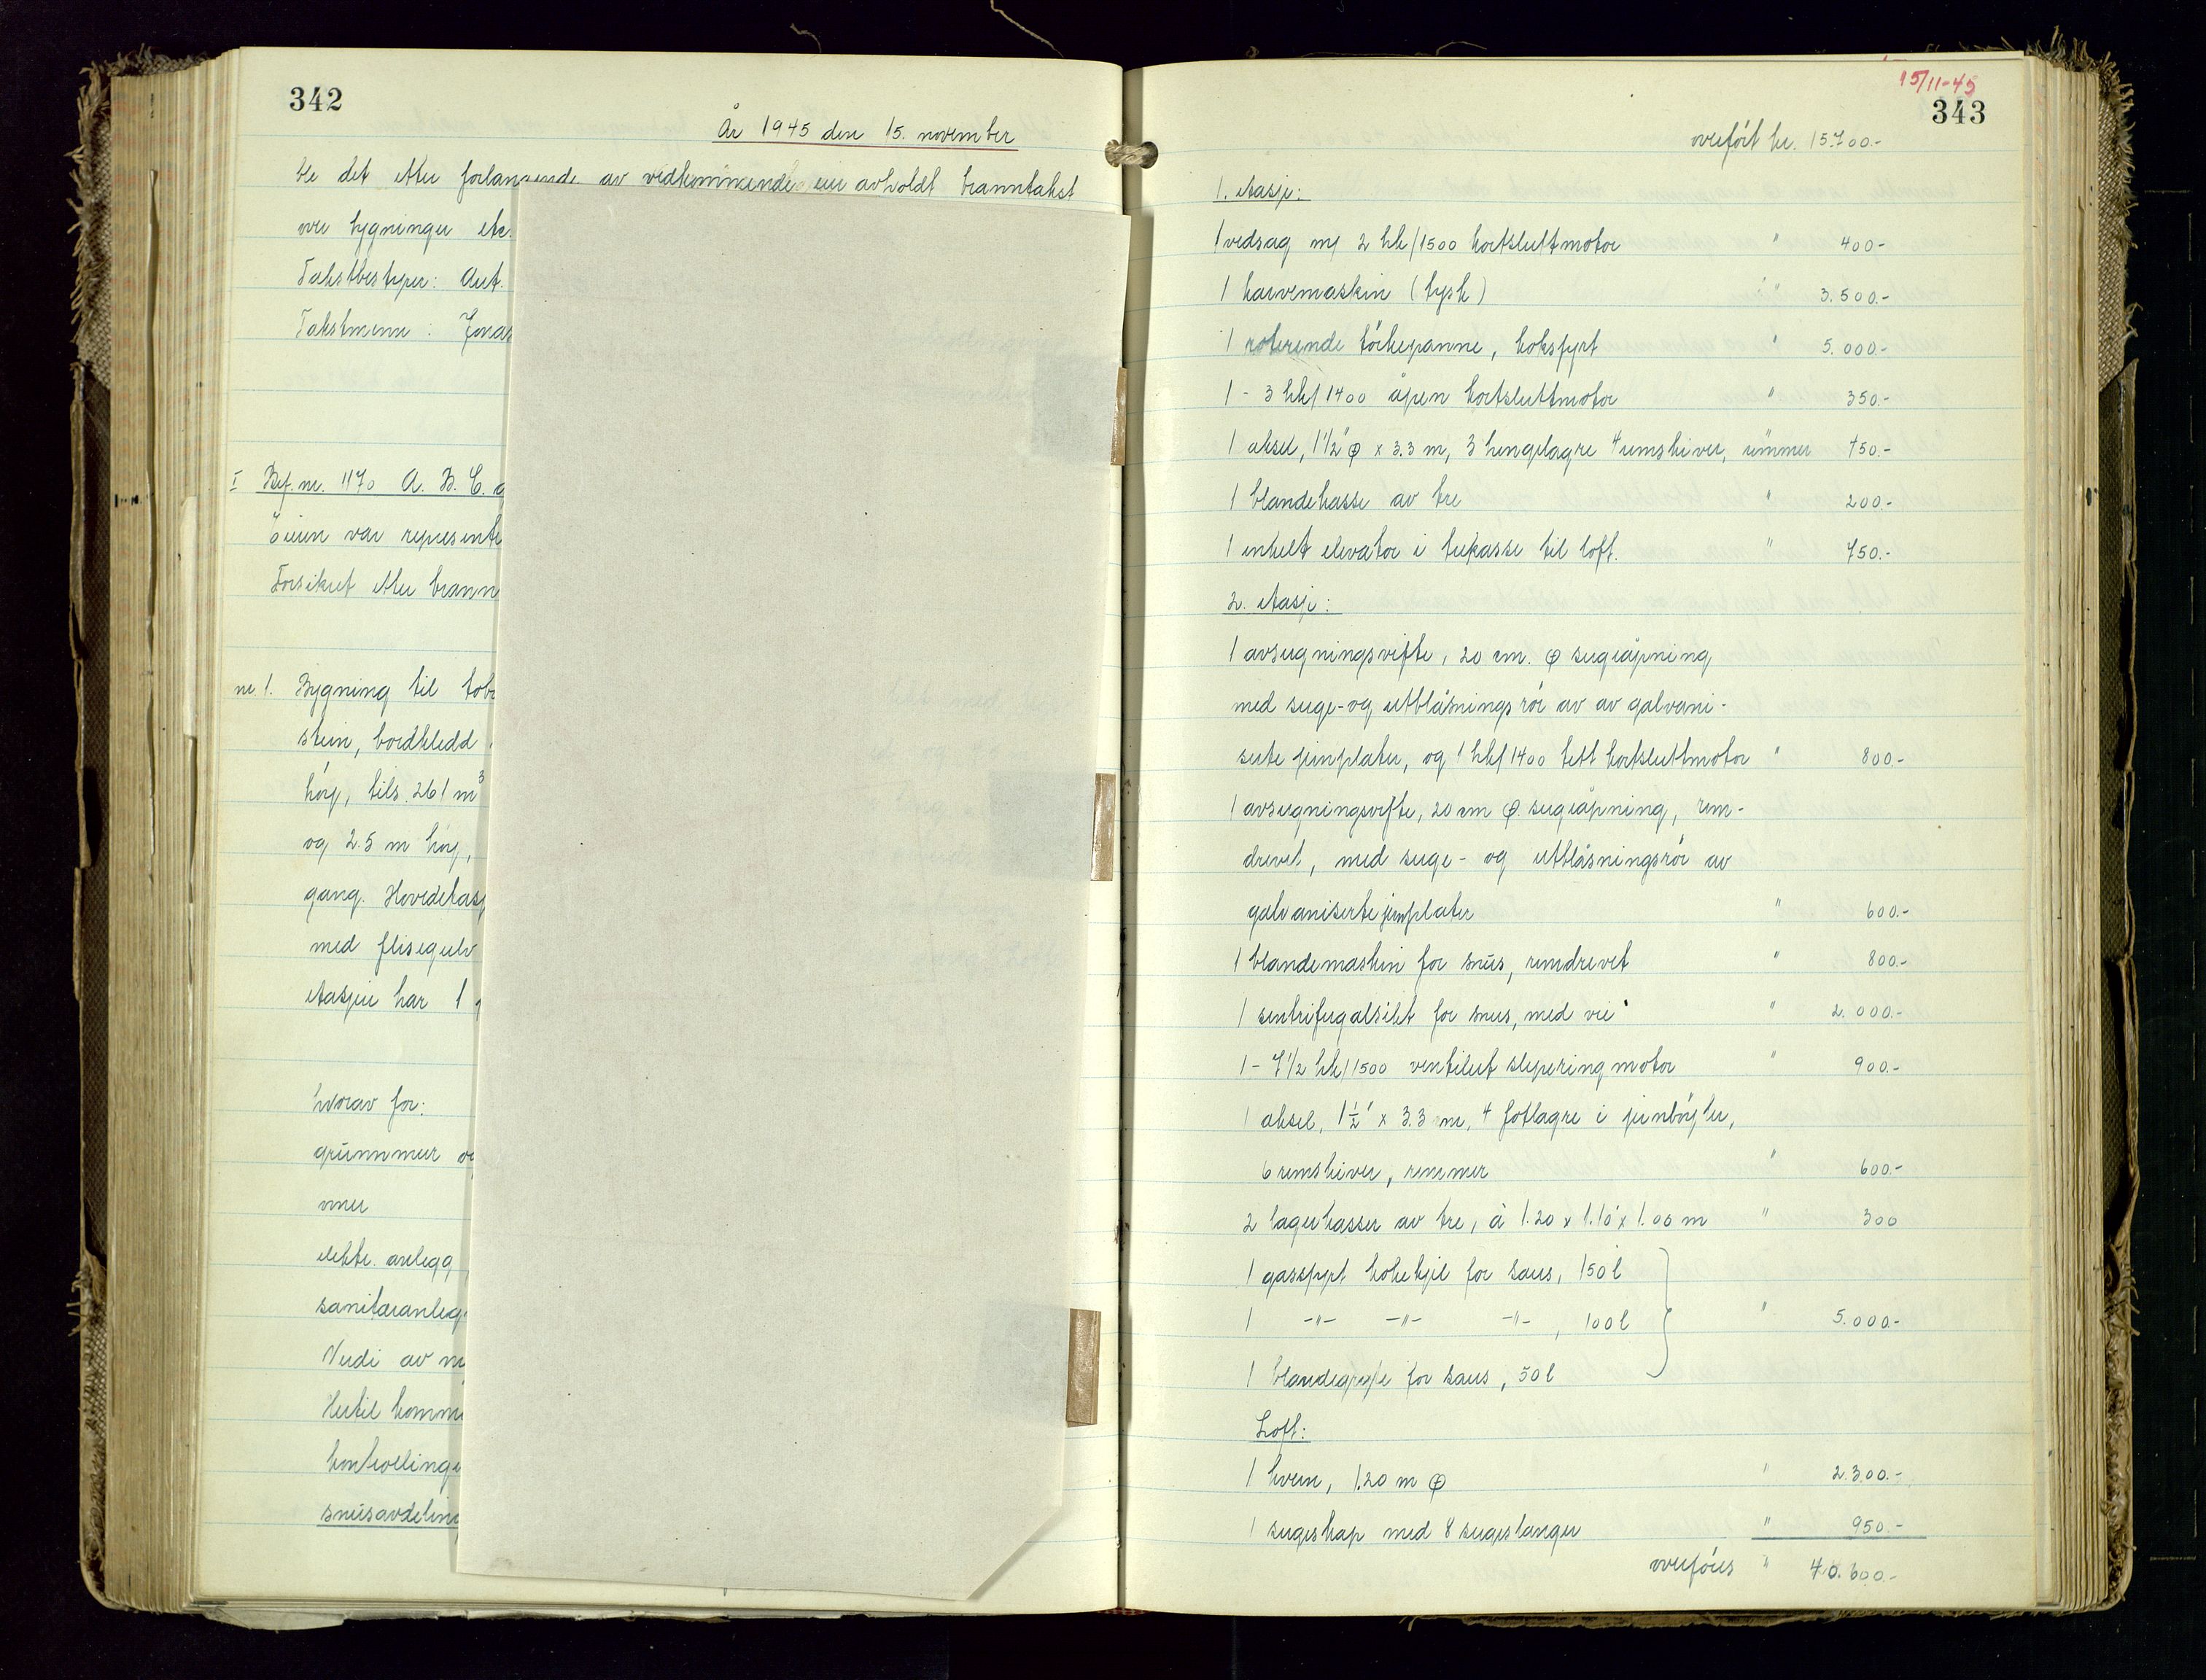 342
År 1945 den 15. november
ble det etter forlangende av vedkommende eier avholdt branntakst
over bygninger etc.
Takstbestyrer: Aut.
Takstmenn: Jonas
I Bef. nr. 1170 A. B. C.
Eieren var represente
Forsikret etter brann
nr. 1. Bygning til
stein, bordkledd
høy, tils. 261 m³
og 2.5 m høy,
gang. Hovedetasj
med flisegulv
etasjen har 1
hvorav for:
grunnmur og
ovner
elektr. anlegg
sanitæranlegg
Verdi av
Hertil komm
kontrollinge
snusavdeling
15/11-45
343
overført kr. 15.700.-
1. etasje:
1 vedsag m/ 2 hk/1500 kortsluttmotor " 400.-
1 karvemaskin (tysk) " 3.500.-
1 roterende tørkepanne, koksfyrt " 5.000.-
1 - 3 hk/1400 åpen kortsluttmotor " 350.-
1 aksel, 1 1/2" φ x 3.3 m, 3 hengelagre 4 remskiver, remmer 450.-
1 blandekasse av tre " 200.-
1 enkelt elevator i trekasse til loft. " 750.-
2. etasje:
1 avsugningsvifte, 20 cm. φ sugeåpning
med suge-og utblåsningsrör av av galvani-
serte jernplater, og 1 hk/1400 tett kortsluttmotor " 800.-
1 avsugningsvifte, 20 cm φ sugeåpning, rem-
drevet, med suge- og utblåsningsrör av
galvaniserte jernplater " 600.-
1 blandemaskin for snus, remdrevet " 800.-
1 sentrifugalsikt for snus, med " 2.000.-
1 - 7 1/2 hk/1500 ventilert sleperingmotor " 900.-
1 aksel, 1 1/2" x 3.3 m, 4 fotlagre i jernbøyler,
6 remskiver, remmer " 600.-
2 lagerkasser av tre, à 1.20 x 1.10 x 1.00 m " 300
1 gassfyrt kokekjel for saus, 150 l
1 -"- -"- -"-, 100 l " 5.000.-
1 blandegryte for saus, 50 l
Loft:
1 kvern, 1.20 m φ " 2.300.-
1 sugeskap med 8 sugeslanger " 950.-
overføres " 40.600.-